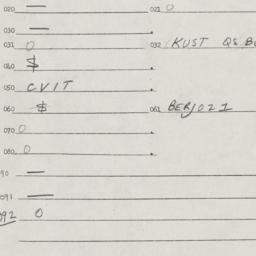 020 — 021 0
030 —
031 0 032 KUST QS
040 $
050 CVIT
060 $ 061 BERJ021
070 0
080 0
90 —
091 —
092 0